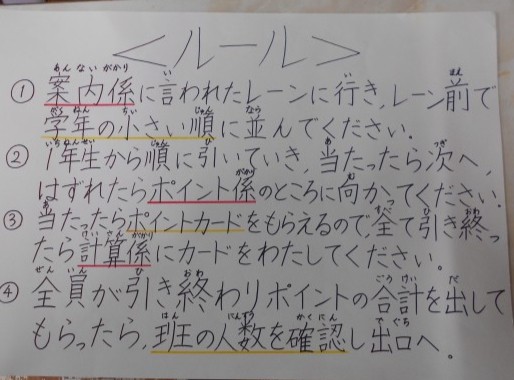 ＜ルール＞
① 案内係に言われたレーンに行き、レーン前で
学年の小さい順に並んでください.
② 1年生から順に引いていき、当たったら次へ、
はずれたらポイント係のところに向かってください.
③ 当たったらポイントカードをもらえるので、全て引き終っ
たら計算係にカードをわたしてください。
④ 全員が引き終わりポイントの合計を出して
もらったら、班の人数を確認し出口へ。